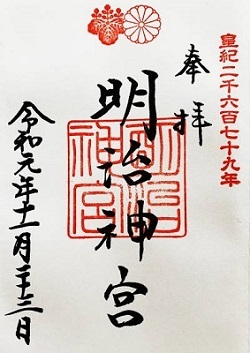 皇紀二千六百七十九年
奉拝
明治神宮
明治神宮
令和元年十一月二十三日